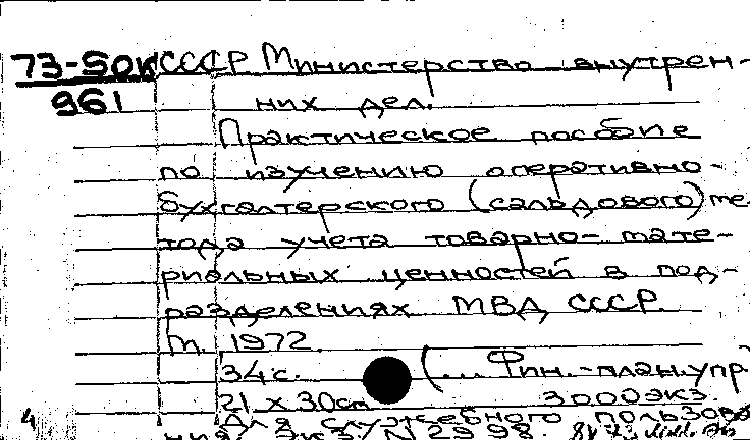 73-50К СССР Министерство внутрен-
961 них дел.
Практическое пособие
по изучению оперативно-
бухгалтерского (сальдового) ме
тода учета товарно-мате-
риальных ценностей в под-
разделениях МВД СССР.
М. 1972.
34с. (... Фин.-план.упр
21 х 30см 3000экз.
Для служебного пользова
ния Экз. N 2998.
4